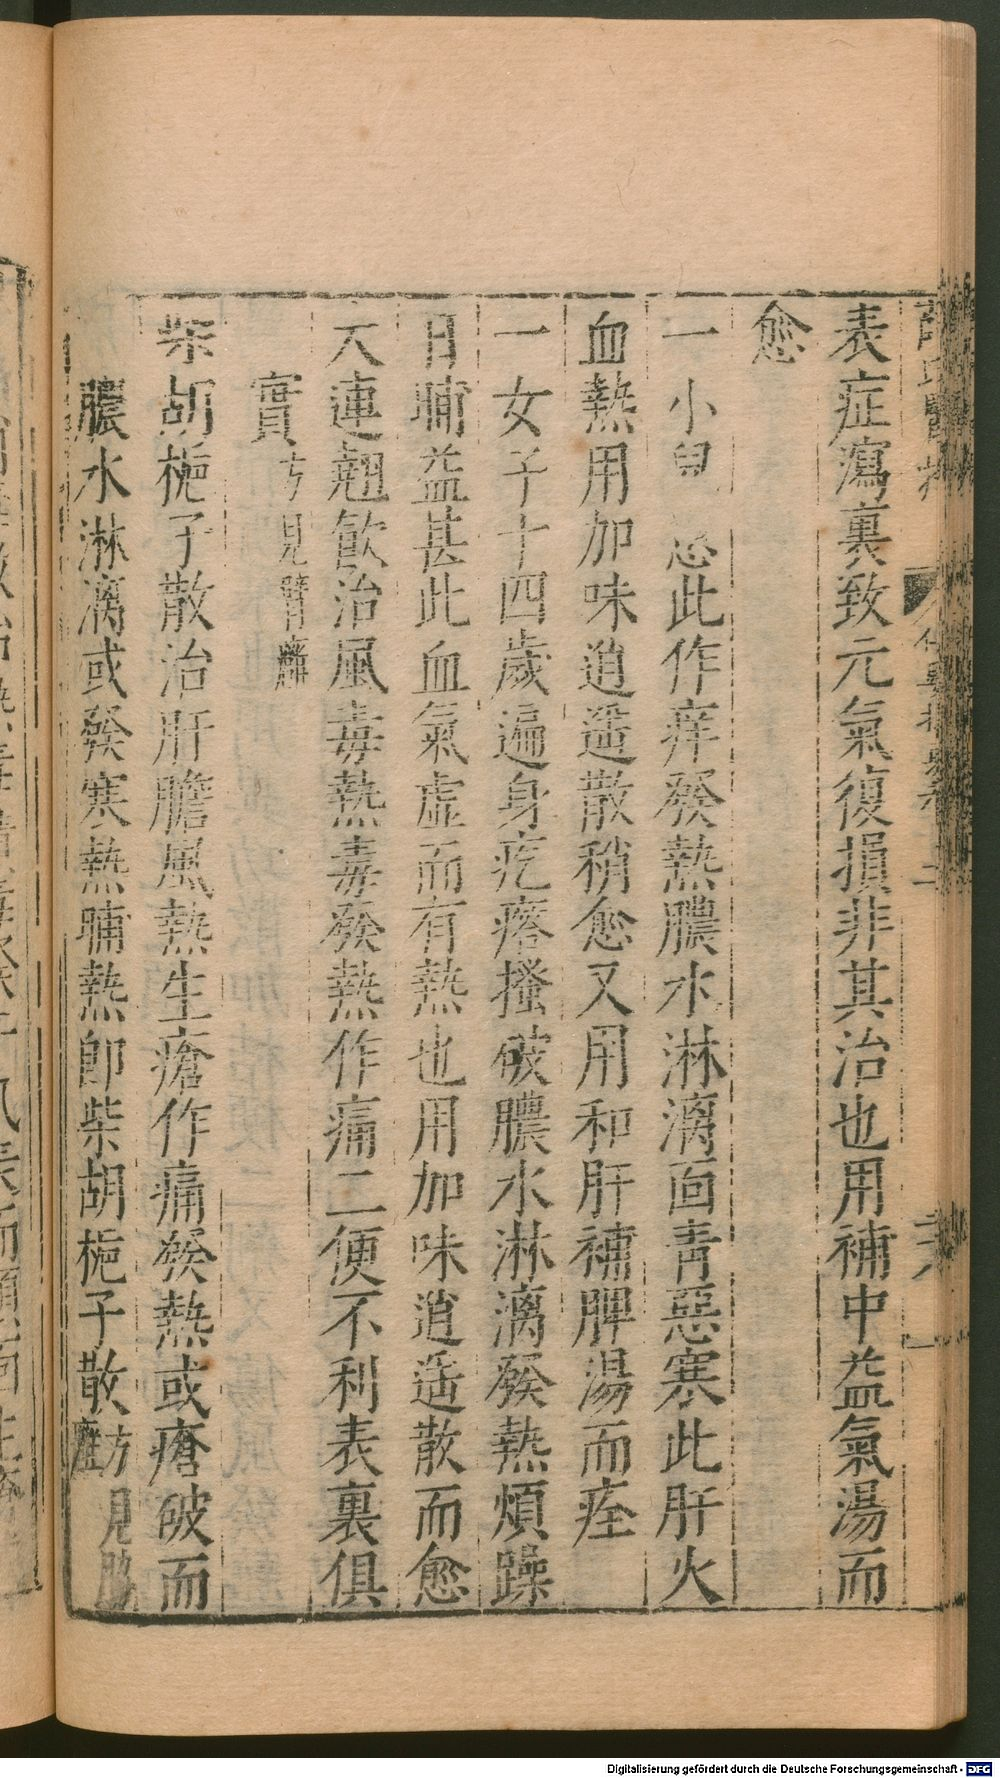 表症瀉裏致元氣復損非其治也用補中益氣湯而
愈
一小兒患此作痒發熱膿水淋漓面青惡寒此肝火
血熱用加味逍遥散稍愈又用和肝補脾湯而痊
一女子十四歲遍身疙瘩搔破膿水淋漓發熱煩躁
日晡益甚此血氣虛而有熱也用加味逍遥散而愈
大連翹飲治風毒熱毒發熱作痛二便不利表裏俱
實方見臂癰
柴胡梔子散治肝膽風熱生瘡作痛發熱或瘡破而
膿水淋漓或發寒熱晡熱即柴胡梔子散方見
Digitalisierung gefördert durch die Deutsche Forschungsgemeinschaft - DFG